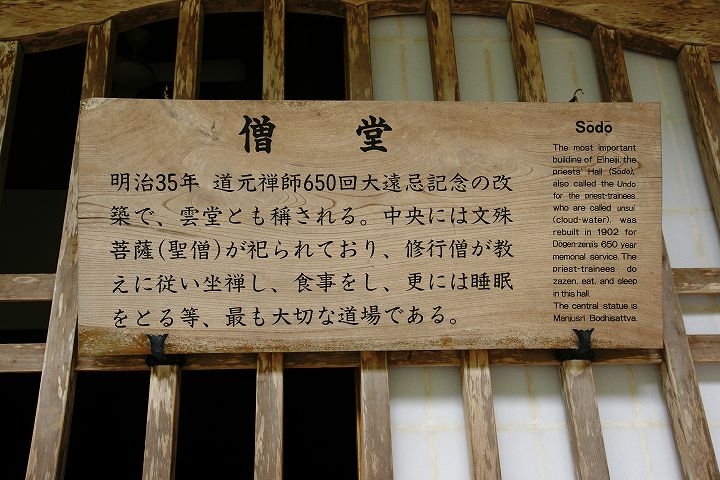 僧堂
明治35年 道元禅師650回大遠忌記念の改
築で、雲堂とも稱される。中央には文殊
菩薩(聖僧)が祀られており、修行僧が教
えに従い坐禅し、食事をし、更には睡眠
をとる等、最も大切な道場である。
Sōdō
The most important
building of Eiheiji, the
priests' Hall (Sōdō),
also called the Undo
for the priest-trainees
who are called unsui
(cloud-water), was
rebuilt in 1902 for
Dōgen-zenji's 650 year
memorial service. The
priest-trainees do
zazen, eat, and sleep
in this hall.
The central statue is
Manjusri Bodhisattva.